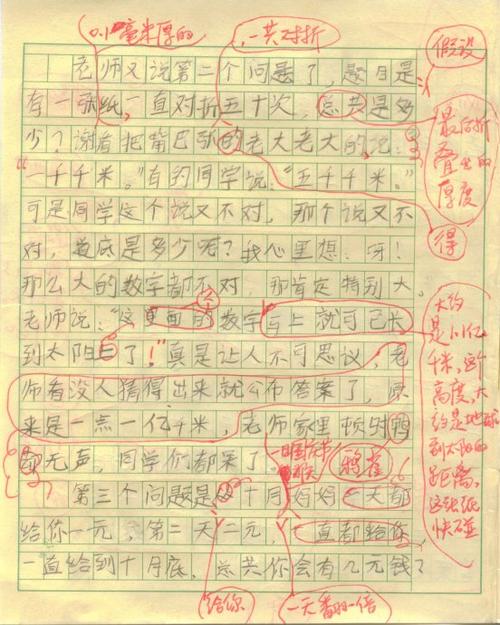 0.1毫米厚的
一共对折
假设
老师又说第二个问题了，题目是
有一张纸，一直对折五十次，总共是多
少？谢着把嘴巴张的老大老大的说：
最后折
叠出的
厚度
“一千千米。”有的同学说：“五千千米。”
可是同学这个说又不对，那个说又不
得
对，道底是多少呢？我心里想：呀！
那么大的数字都不对，那肯定特别大。
老师说：“这里面的数字与上就可已长
到太阳与了！”真是让人不可思议，老
师看没人猜得出来就公布答案了，原
来是一点一亿千米，老师家里顿时鸭
无声，同学们都呆了。
大约
是1.1亿
千米，这个
高度，大
约是地球
到太阳的
距离，
这张纸
快碰
国庆节
放假
鸦雀
第三个问题是 十月 好好 天都
给你一元，第二天二元，一直都给你
一直给到十月底，总共你会有几元钱？
给你
一天翻一倍